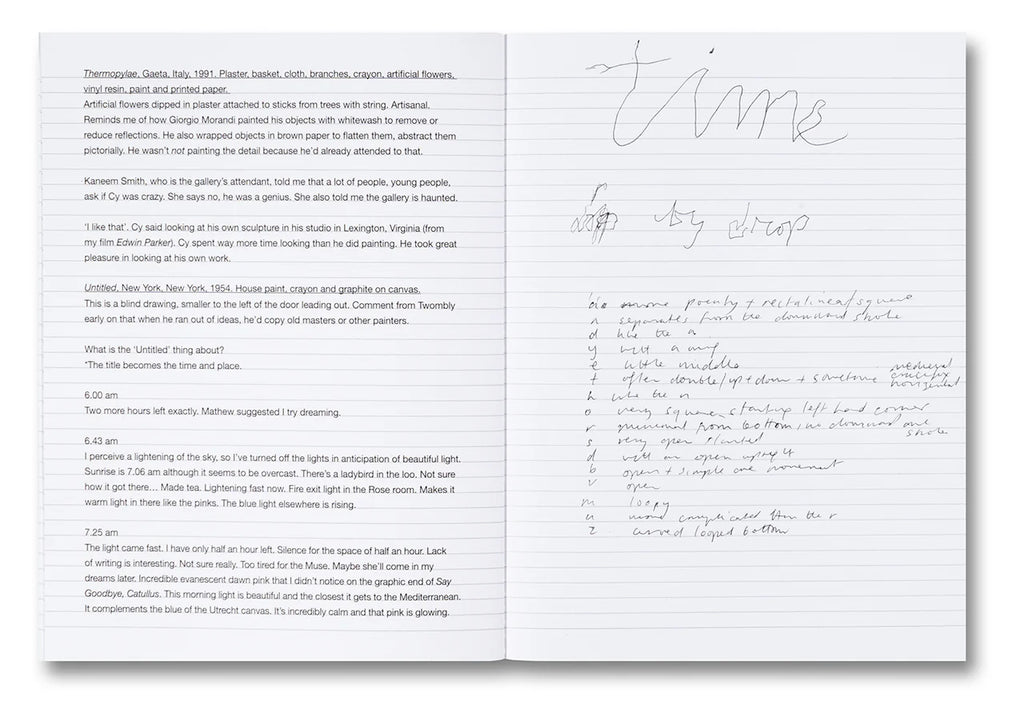 Thermopylae, Gaeta, Italy, 1991. Plaster, basket, cloth, branches, crayon, artificial flowers,
vinyl resin, paint and printed paper.
Artificial flowers dipped in plaster attached to sticks from trees with string. Artisanal.
Reminds me of how Giorgio Morandi painted his objects with whitewash to remove or
reduce reflections. He also wrapped objects in brown paper to flatten them, abstract them
pictorially. He wasn't not painting the detail because he'd already attended to that.
Kaneem Smith, who is the gallery's attendant, told me that a lot of people, young people,
ask if Cy was crazy. She says no, he was a genius. She also told me the gallery is haunted.
'I like that'. Cy said looking at his own sculpture in his studio in Lexington, Virginia (from
my film Edwin Parker). Cy spent way more time looking than he did painting. He took great
pleasure in looking at his own work.
Untitled, New York, New York, 1954. House paint, crayon and graphite on canvas.
This is a blind drawing, smaller to the left of the door leading out. Comment from Twombly
early on that when he ran out of ideas, he'd copy old masters or other painters.
What is the 'Untitled' thing about?
*The title becomes the time and place.
6.00 am
Two more hours left exactly. Mathew suggested I try dreaming.
6.43 am
I perceive a lightening of the sky, so I've turned off the lights in anticipation of beautiful light.
Sunrise is 7.06 am although it seems to be overcast. There's a ladybird in the loo. Not sure
how it got there… Made tea. Lightening fast now. Fire exit light in the Rose room. Makes it
warm light in there like the pinks. The blue light elsewhere is rising.
7.25 am
The light came fast. I have only half an hour left. Silence for the space of half an hour. Lack
of writing is interesting. Not sure really. Too tired for the Muse. Maybe she'll come in my
dreams later. Incredible evanescent dawn pink that I didn't notice on the graphic end of Say
Goodbye, Catullus. This morning light is beautiful and the closest it gets to the Mediterranean.
It complements the blue of the Utrecht canvas. It's incredibly calm and that pink is glowing.
time
by drop
more pointy + rectalinear/square
n separates from the downward stroke
d like the a
y with a
e little middle
t often double/up+down + sometime medieval crucifix horizontal
h like the n
o very square, starting left hand corner
r from bottom, no downward stroke
s very open slanted
d with an open
b open + simple one movement
v open
m loopy
u more complicated than the r
z curved looped bottom